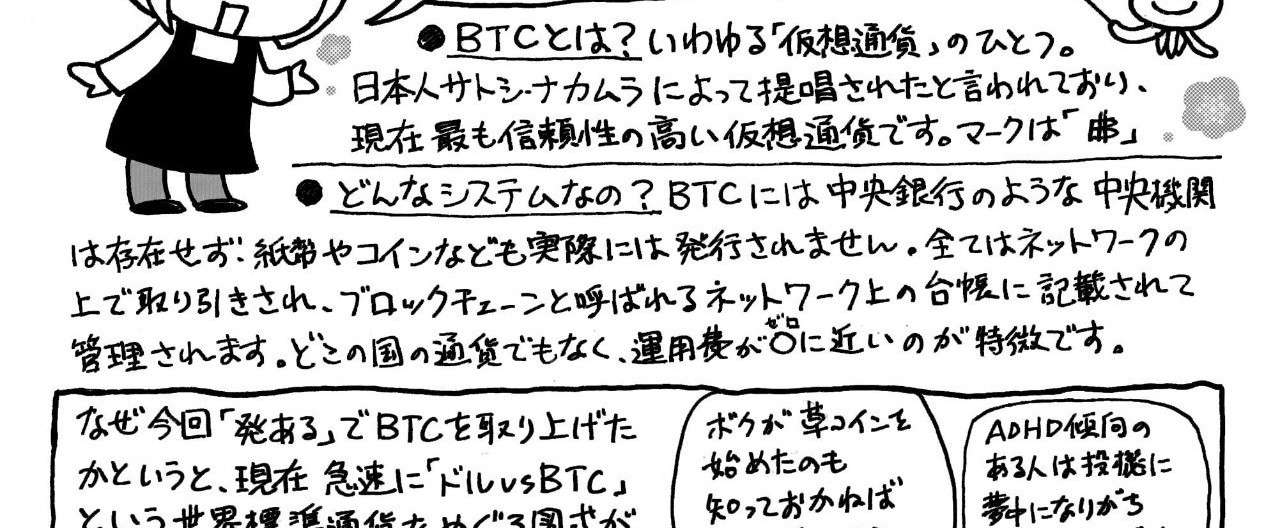 ●BTCとは?いわゆる「仮想通貨」のひとつ。
日本人サトシ・ナカムラによって提唱されたと言われており、
現在最も信頼性の高い仮想通貨です。マークは「」
●どんなシステムなの?BTCには中央銀行のような中央機関
は存在せず、紙幣やコインなども実際には発行されません。全てはネットワークの
上で取り引きされ、ブロックチェーンと呼ばれるネットワーク上の台帳に記載されて
管理されます。どこの国の通貨でもなく、運用費が〇に近いのが特徴です。
ゼロ
なぜ今回「発ある」でBTCを取り上げた
かというと、現在急速に「ドルvsBTC」
という世界標準通貨をめぐる図式が
ボクが草コインを
始めたのも
知っておかねば
ADHD傾向の
ある人は投機に
夢中になりがち